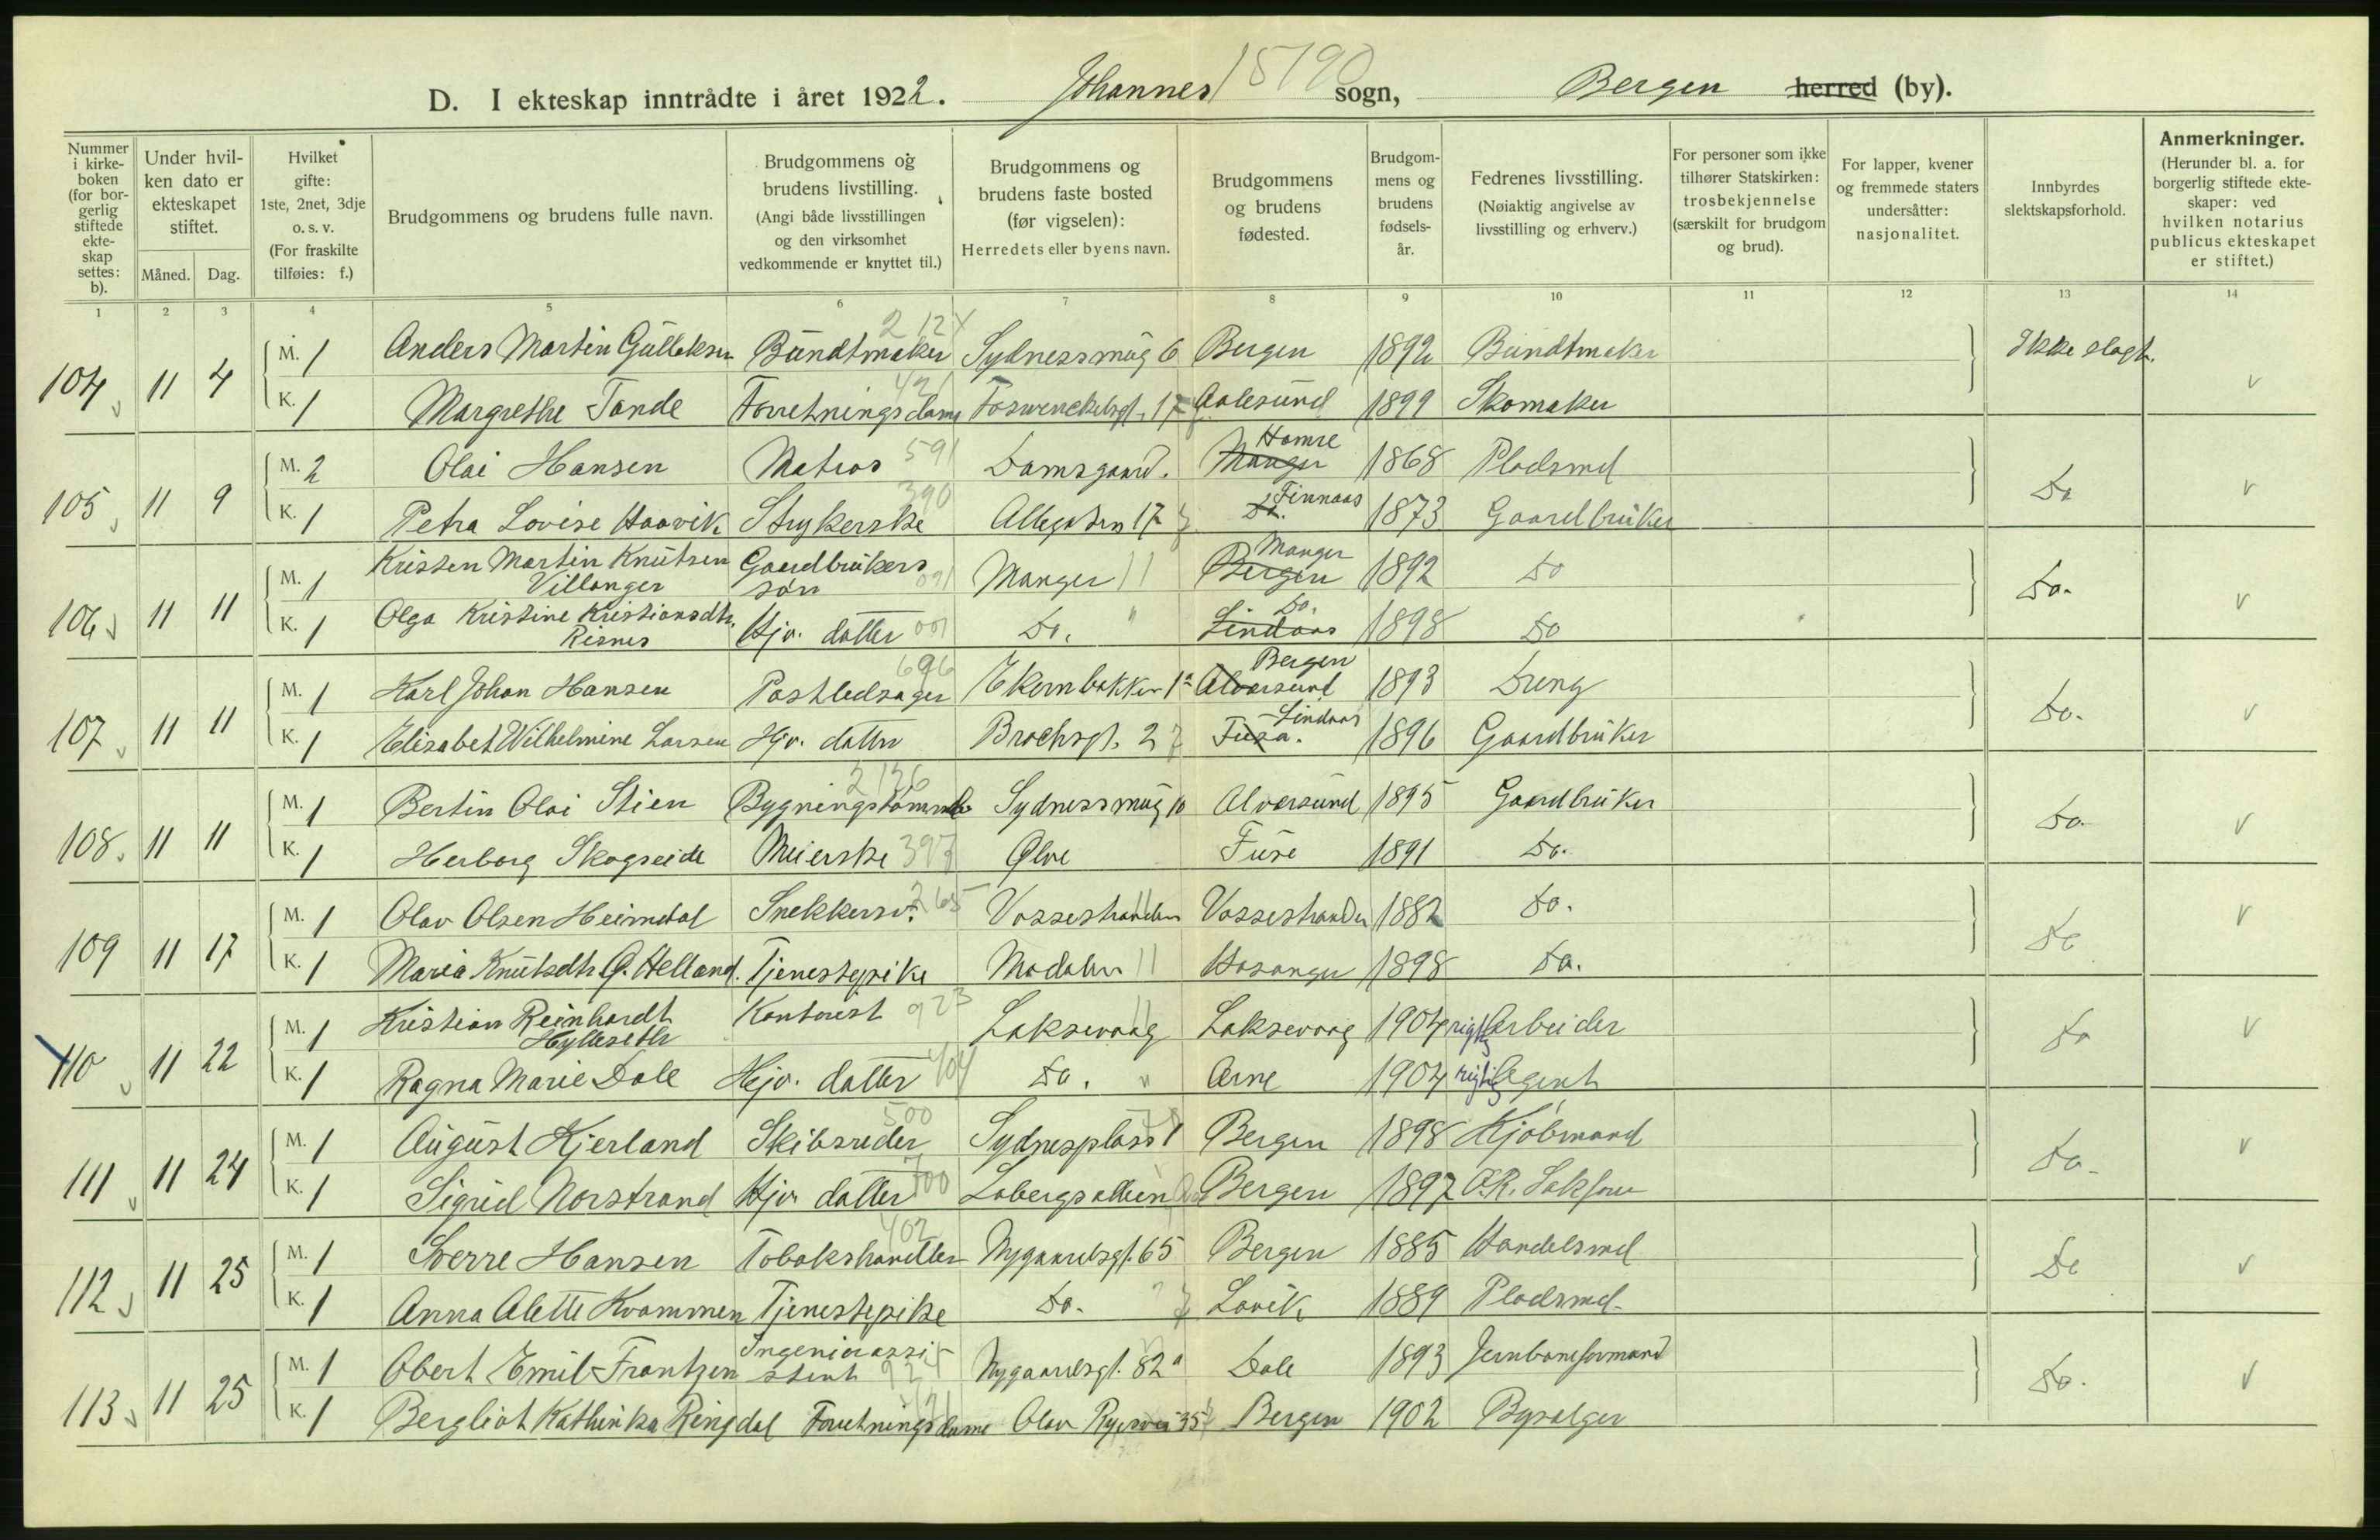 D. I ekteskap inntrådte i året 1922. Johannes sogn, Bergen herred (by).
15190
Nummer i kirke-boken (for bor-gerlig stiftede ekte-skap settes: b).
Under hvil-ken dato er ekteskapet stiftet.
Måned. Dag.
Hvilket gifte: 1ste, 2net, 3dje o. s. v. (For fraskilte tilføies: f.)
Brudgommens og brudens fulle navn.
Brudgommens og brudens livstilling. (Angi både livsstillingen og den virksomhet vedkommende er knyttet til.)
Brudgommens og brudens faste bosted (før vigselen): Herredets eller byens navn.
Brudgommens og brudens fødested.
Brudgom-mens og brudens fødsels-år.
Fedrenes livsstilling. (Nøiaktig angivelse av livsstilling og erhverv.)
For personer som ikke tilhører Statskirken: trosbekjennelse (særskilt for brudgom og brud).
For lapper, kvener og fremmede staters undersåtter: nasjonalitet.
Innbyrdes slektskapsforhold.
Anmerkninger. (Herunder bl. a. for borgerlig stiftede ekte-skaper: ved hvilken notarius publicus ekteskapet er stiftet.)
1 2 3 4 5 6 7 8 9 10 11 12 13 14
104 11 4 M. 1 Anders Martin Gulleksen Bundtmaker Sydnessmug 6 Bergen 1892 Bundtmaker Ikke slegt.
K. 1 Margrethe Tande Forretningsdame 421 Fosswinckelsgt. 17 Aalesund 1899 Skomaker
105 11 9 M. 2 Olai Hansen Matros 591 Damsgaard. Manger Hamre 1868 Pladsmd Do
K. 1 Petra Lovise Haavik Strykerske 390 Allegaten 17 Do. Finnaas 1873 Gaardbruker
106 11 11 M. 1 Kristen Martin Knutsen Villanger Gaardbrukers søn 091 Manger Bergen Manger 1892 Do Do.
K. 1 Olga Kristine Kristiansdtr. Risnes Hjv. datter 001 Do. " Lindaas Do. 1898 Do
107 11 11 M. 1 Karl Johan Hansen Postledsager 696 Ekernbakken 1a Alversund Bergen 1893 Dreng Do.
K. 1 Elisabet Wilhelmine Larsen Hjv. datter Brochsgt. 2 Fusa. Lindaas 1896 Gaardbruker
108 11 11 M. 1 Bertin Olai Stien Bygningstømmer Sydnessmug 10 Alversund 1895 Gaardbruker Do.
K. 1 Herborg Skogseide Meierske 397 Ølve Fuse 1891 Do.
109 11 17 M. 1 Olav Olsen Heimdal Snekkersv. 265 Vossestranden Vossestranden 1882 Do. Do
K. 1 Maria Knutsdtr Ø. Helland. Tjenestepike Modalen Hosanger 1898 Do.
110 11 22 M. 1 Kristian Reinhardt Hylleseth Kontorist 923 Laksevaag Laksevaag 1904 rigtig Arbeider Do
K. 1 Ragna Marie Dale Hjv. datter 704 Do. " Arne 1904 rigtig Agent
111 11 24 M. 1 August Kjerland Skibsreder 500 Sydnesplass 1 Bergen 1898 Kjøbmand Do.
K. 1 Sigrid Norstrand Hjv. datter 700 Løbergsalleen Bergen 1897 O.R. Sakfører
112 11 25 M. 1 Sverre Hansen Tobakshandler 402 Nygaardsgt. 65 Bergen 1885 Handelsmd Do
K. 1 Anna Alette Kvammen Tjenestepike Do. " Lavik 1889 Pladsmd.
113 11 25 M. 1 Obert Emil Frantzen Ingeniørassistent Nygaardsgt. 82a Dale 1893 Jernbaneformand Do.
K. 1 Bergliot Kathinka Ringdal Forretningsdame Olav Ryesvei 35 Bergen 1902 Byselger